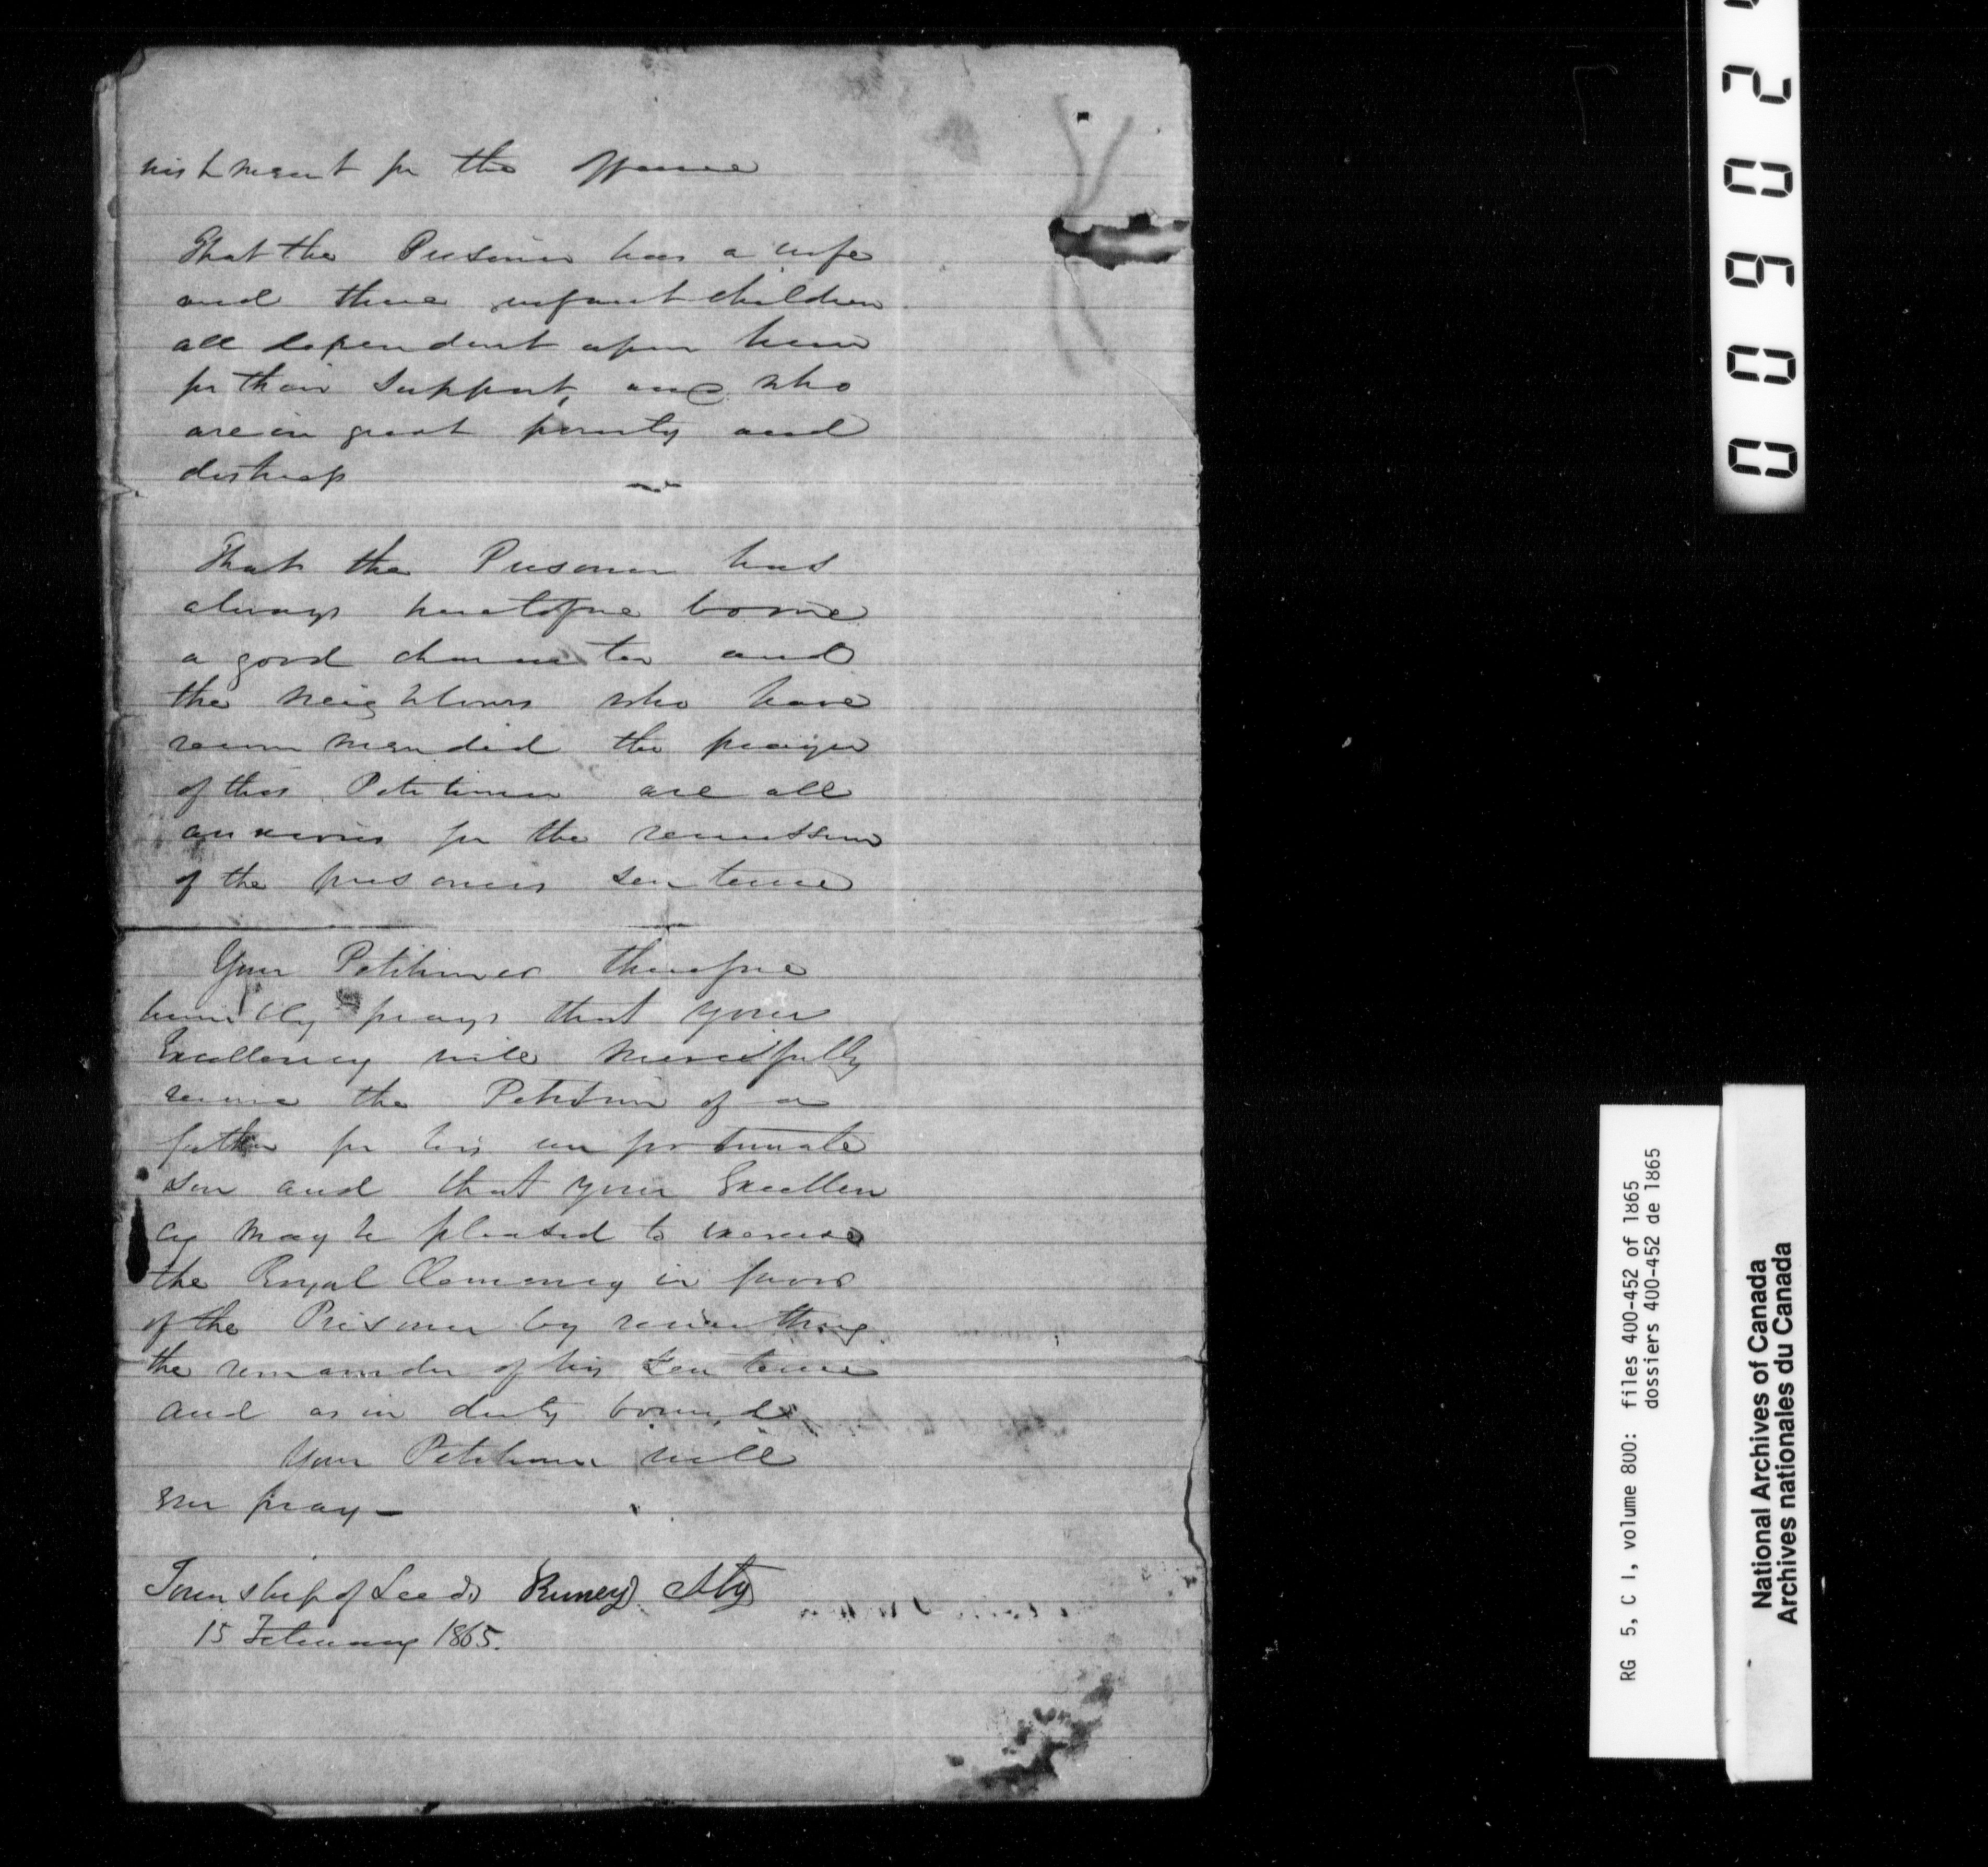 nishment for the offence
That the Prisoner has a wife
and three infant children
all dependent upon him
for their support, and who
are in great poverty and
distress
That the Prisoner has
always heretofore borne
a good character and
the neighbours who have
recommended the prayer
of this Petitioner are all
anxious for the remission
of the prisoners sentence
Your Petitioner therefore
humbly prays that your
Excellency will mercifully
receive the Petition of a
father for his unfortunate
son and that your Excellen
cy may be pleased to exercise
the Royal Clemency in favor
of the Prisoner by remitting
the remainder of his sentence
and as in duty bound
Your Petitioner will
ever pray —
Township of Leeds
15 February 1865.
0 0 9 0 2
RG 5, C 1, volume 800: files 400-452 of 1865
dossiers 400-452 de 1865
National Archives of Canada
Archives nationales du Canada